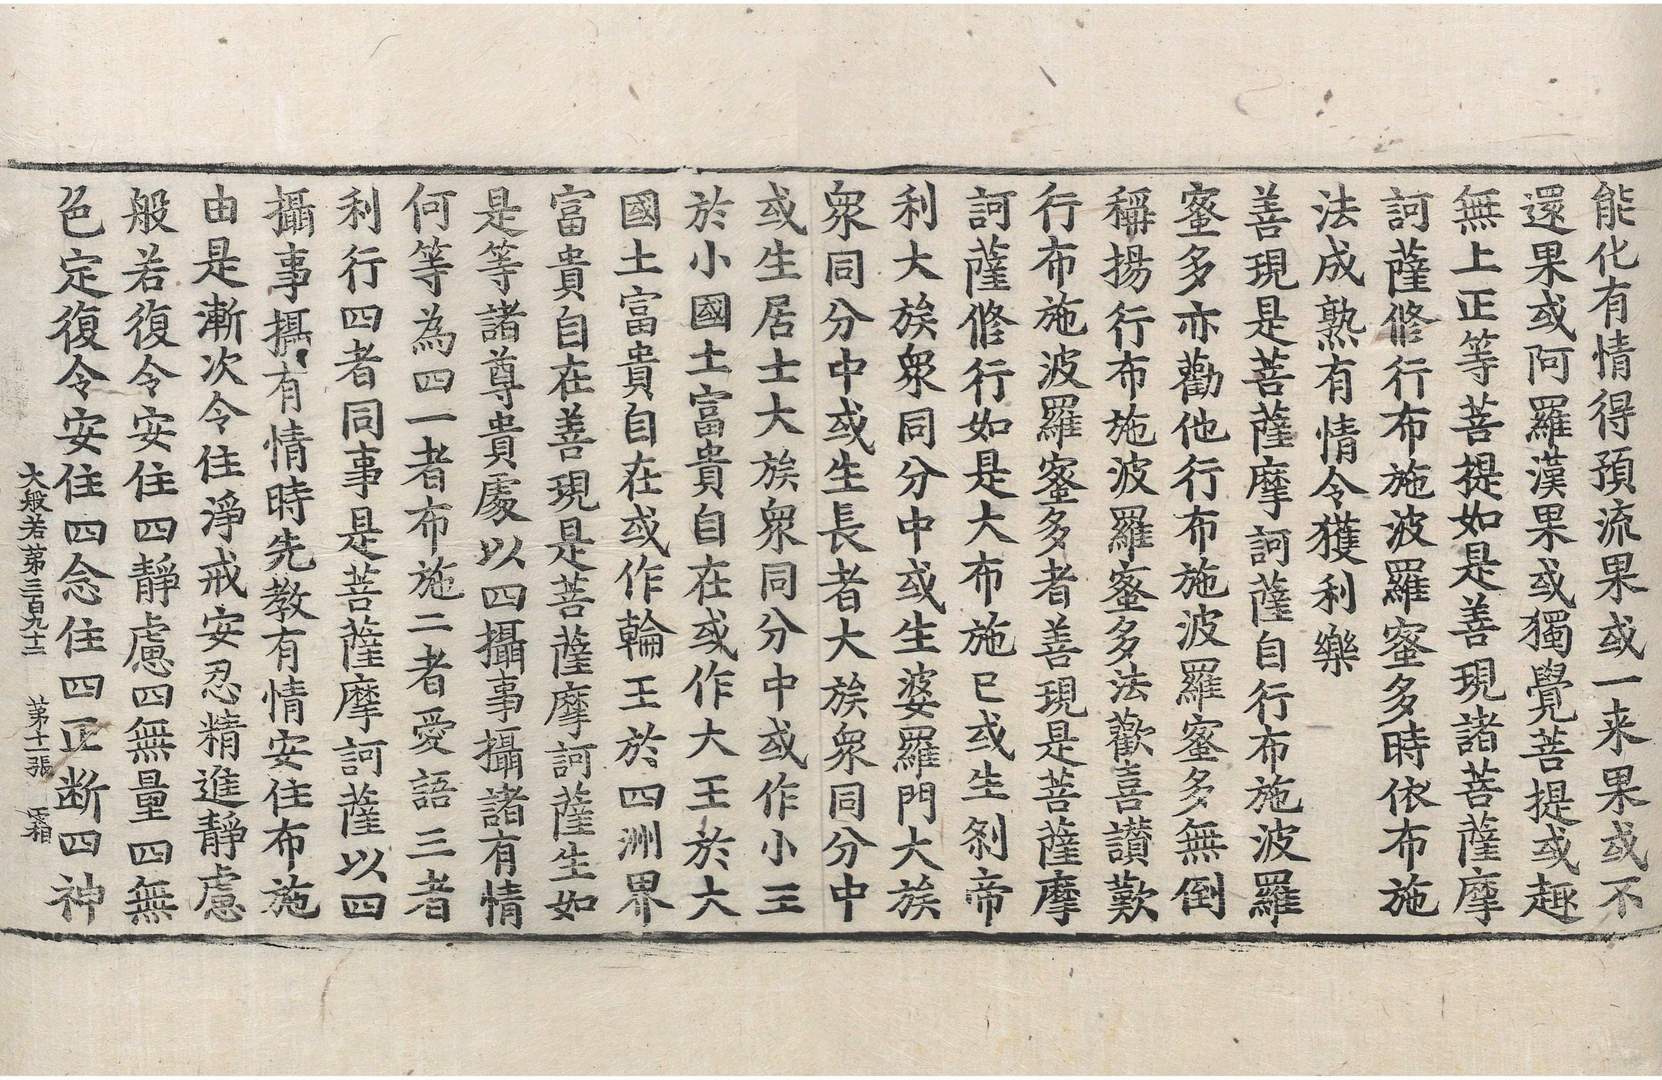 能化有情得預流果或一来果或不
還果或阿羅漢果或獨覺菩提或趣
無上正等菩提如是善現諸菩薩摩
訶薩修行布施波羅蜜多時依布施
法成熟有情令獲利樂
善現是菩薩摩訶薩自行布施波羅
蜜多亦勸他行布施波羅蜜多無倒
稱揚行布施波羅蜜多法歡喜讃歎
行布施波羅蜜多者善現是菩薩摩
訶薩修行如是大布施已或生刹帝
利大族衆同分中或生婆羅門大族
衆同分中或生長者大族衆同分中
或生居士大族衆同分中或作小王
於小國土富貴自在或作大王於大
國土富貴自在或作輪王於四洲界
富貴自在善現是菩薩摩訶薩生如
是等諸尊貴處以四攝事攝諸有情
何等為四一者布施二者愛語三者
利行四者同事是菩薩摩訶薩以四
攝事攝有情時先教有情安住布施
由是漸次令住淨戒安忍精進靜慮
般若復令安住四靜慮四無量四無
色定復令安住四念住四正断四神
大般若第三百九十二 第十一張 霜